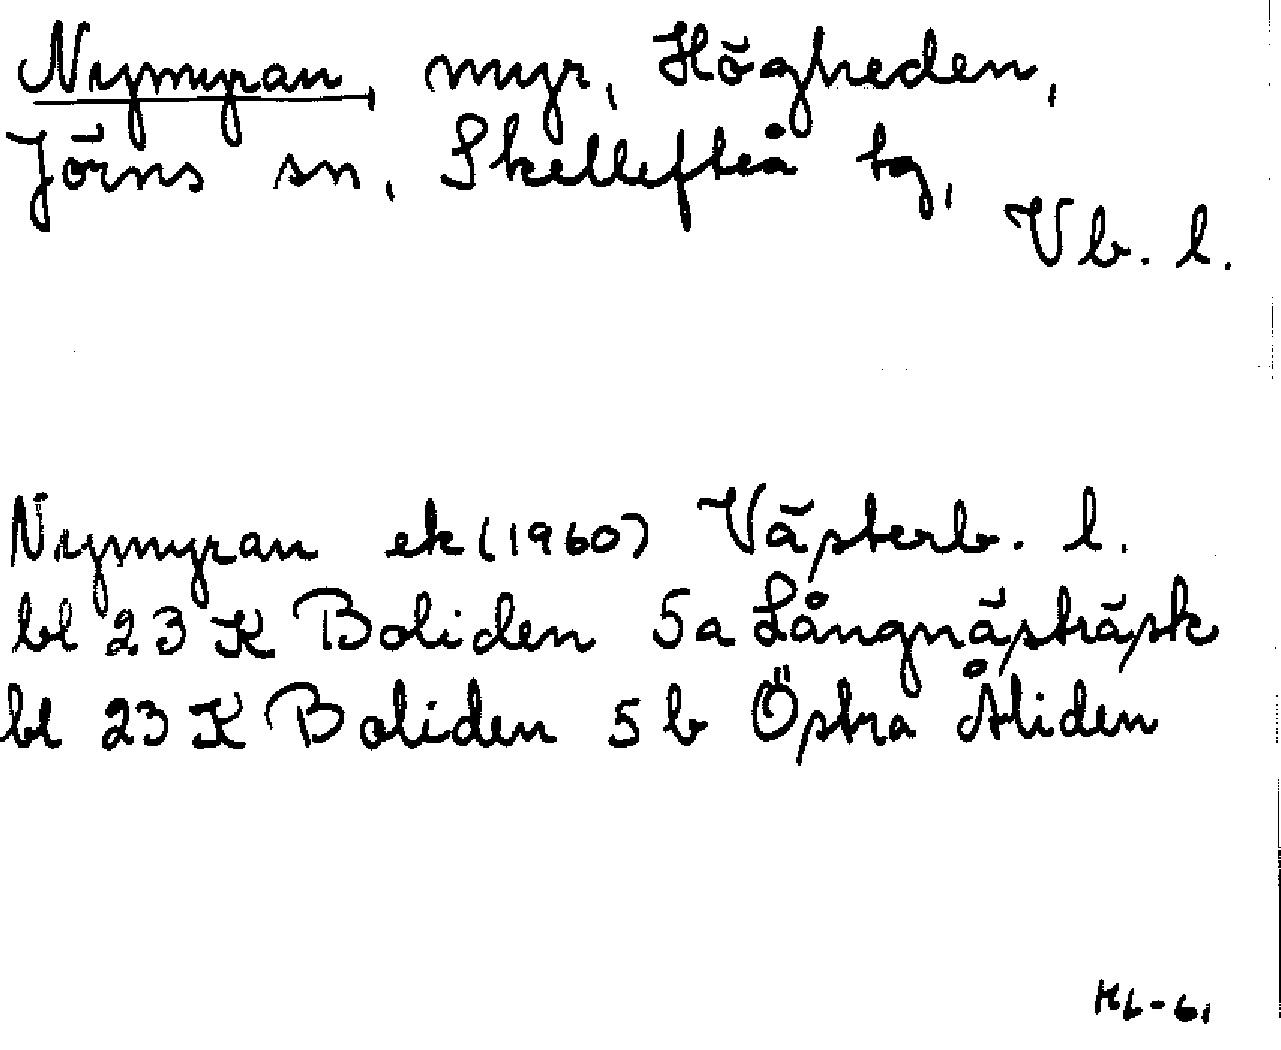 Nymyran, myr, Högheden,
Jörns sn, Skellefteå tg,
Vb. l.
Nymyran ek (1960) Västerb. l.
bl 23 K Boliden 5a Långnästräsk
bl 23 K Boliden 5 b Östra Åliden